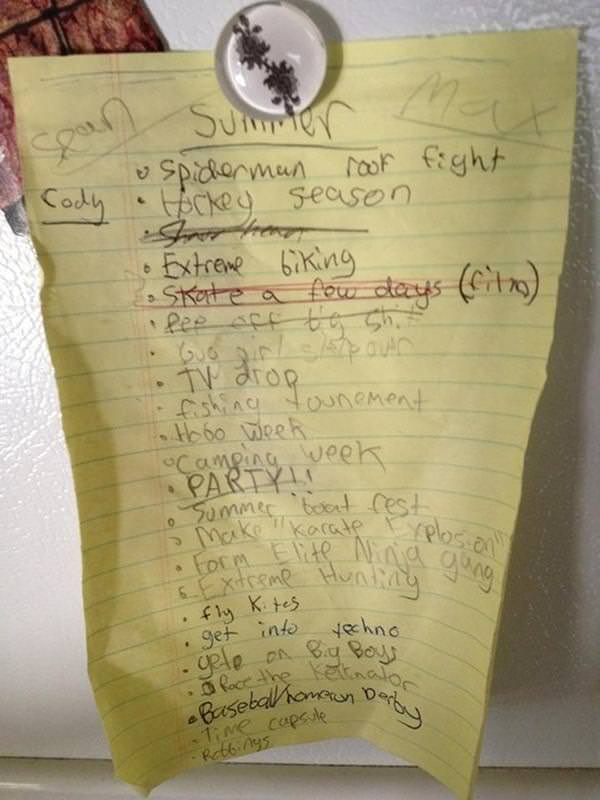 Sean
Summer
Max
Cody
Spiderman roof fight
Hockey season
Extreme biking
Skate a few days (film)
Pee off big sh.t
guy girl sleepover
TV drop
fishing tounement
Hobo week
Camping week
PARTY!!
Summer boat fest
Make "Karate Explosion"
Form Elite Ninja gang
Extreme Hunting
fly kites
get into techno
yelp on Big Boys
Race the
Baseball/homerun Derby
Time capsule